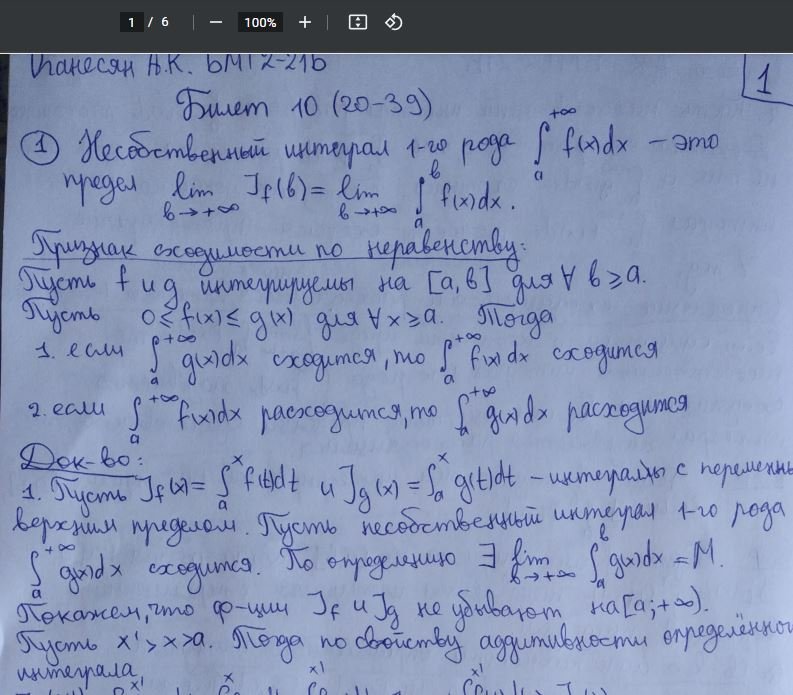 1 / 6 100%
А.К. БМТ2-21Б
1
Билет 10 (20-39)
① Несобственный интеграл 1-го рода ∫ₐ^{+∞} f(x)dx – это
предел lim_{b→+∞} J_f(b) = lim_{b→+∞} ∫ₐ^b f(x)dx.
Признак сходимости по неравенству:
Пусть f и g интегрируемы на [a,b] для ∀ b ≥ a.
Пусть 0 ≤ f(x) ≤ g(x) для ∀ x ≥ a. Тогда
1. если ∫ₐ^{+∞} g(x)dx сходится, то ∫ₐ^{+∞} f(x)dx сходится
2. если ∫ₐ^{+∞} f(x)dx расходится, то ∫ₐ^{+∞} g(x)dx расходится
Док-во:
1. Пусть J_f(x) = ∫ₐ^x f(t)dt и J_g(x) = ∫ₐ^x g(t)dt – интегралы с переменны
верхним пределом. Пусть несобственный интеграл 1-го рода
∫ₐ^{+∞} g(x)dx сходится. По определению ∃ lim_{b→+∞} ∫ₐ^b g(x)dx = M.
Покажем, что ф-ции J_f и J_g не убывают на [a;+∞).
Пусть x' > x > a. Тогда по свойству аддитивности определённого
интеграла